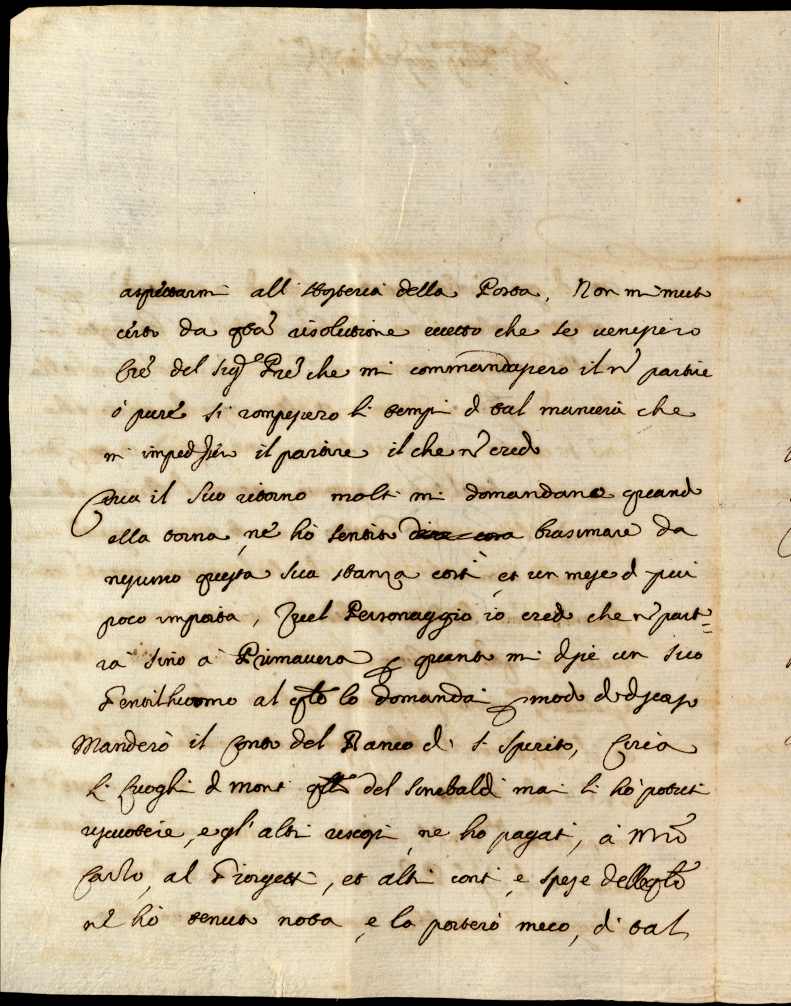 aspettarmi all'Hosteria della Posta, Non mi muto
certo da q̃ta risolutione eccetto che se venissero
lr̃e del Sig.r Prẽ che mi commandassero il ñ partire
ò purẽ si rompessero li tempi d tal maniera che
m'impedissero il partire il che ñ credo
Circa il suo ritorno molti mi domandano quand
ella torna, nè hò sentito biasimare da
nessuno questa sua stanza costì, et un mese d più
poco importa, quel Personaggio io credo che ñ parti=
rà sino à Primavera p quanto mi disse un suo
Gentilhuomo al q̃le lo domandai p modo d discorso
Manderò il Conto del Banco di S. Spirito, Circa
li luoghi d monti del Sinebaldi mai li hò potuti
riscuotere, e gl'altri riscossi, ne ho pagati, à Mrõ
Carlo, al Giorgetti, et altri conti, e spese
nẽ hò tenuto nota, e la porterò meco, di tal